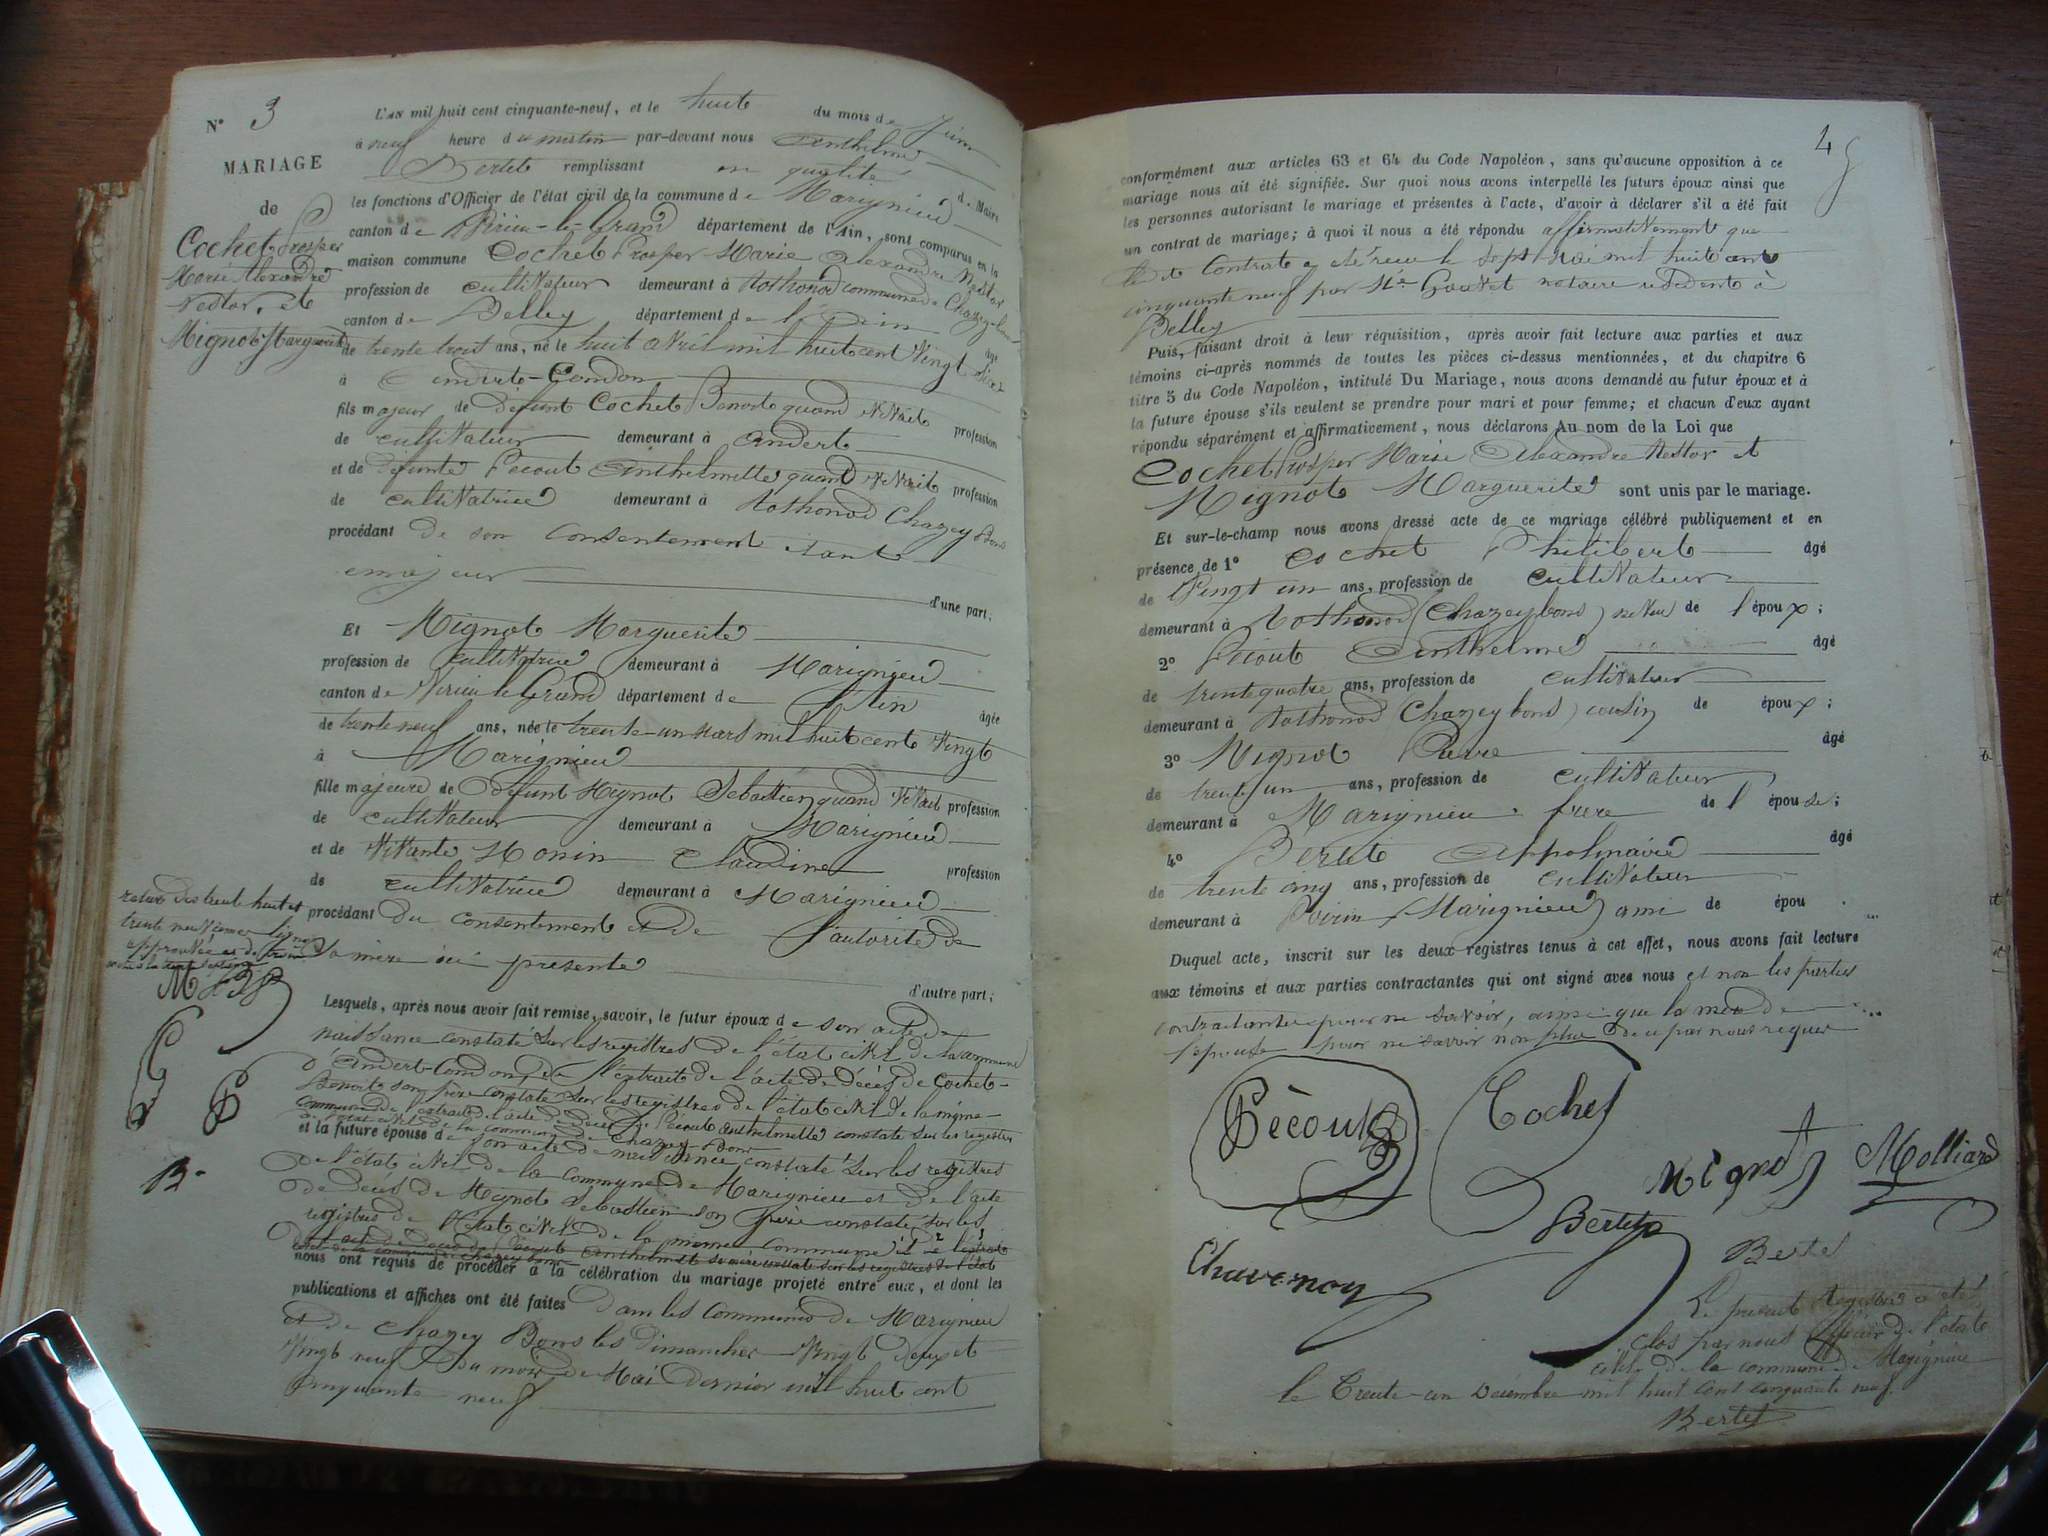 N° 3
MARIAGE
de
Cochet Prosper
Marie Alexandre
Nestor, et
Mignot Marguerite
L'AN mil huit cent cinquante-neuf, et le huit du mois de Juin
à neuf heure du matin par-devant nous Anthelme
Bertet remplissant en qualité de Maire
les fonctions d'Officier de l'état civil de la commune de Marignieu
canton de Virieu-le-Grand département de l'Ain, sont comparus en la
maison commune Cochet Prosper Marie Alexandre Nestor
profession de cultivateur demeurant à Rothonod commune de Chazey-bons
canton de Belley département de l'Ain âgé
de trente trois ans, né le huit avril mil huit cent vingt six
à Andert-Condon
fils majeur de défunt Cochet Benoit quand vivait profession
de cultivateur demeurant à Andert
et de défunte Pecout Anthelmette quand vivait profession
de cultivatrice demeurant à Rothonod Chazey Bons
procédant de son consentement étant
majeur
d'une part;
Et Mignot Marguerite
profession de cultivatrice demeurant à Marignieu
canton de Virieu le Grand département de l'Ain âgée
de trente neuf ans, née le trente-un mars mil huit cent vingt
à Marignieu
fille majeure de défunt Mignot Sébastien quand vivait profession
de cultivateur demeurant à Marignieu
et de vivante Monin Claudine profession
de cultivatrice demeurant à Marignieu
procédant du consentement et de l'autorité de
sa mère ici présente
d'autre part;
trente huit et
trente neuvièmes lignes
approuvée
Lesquels, après nous avoir fait remise, savoir, le futur époux de son acte de
naissance constaté sur les registres de l'état civil de la commune
d'Andert-Condon, de l'extrait de l'acte de décès de Cochet
Benoit son père constaté sur les registres de l'état civil de la même
commune de l'extrait de l'acte de décès de Pecout Anthelmette constaté sur les registres
de l'état civil de la commune de Chazey Bons
et la future épouse de son acte de naissance constaté sur les registres
de l'état civil de la commune de Marignieu et de l'acte
de décès de Mignot Sébastien son père constaté sur les
registres de l'état civil de la même commune
nous ont requis de procéder à la célébration du mariage projeté entre eux, et dont les
publications et affiches ont été faites dans les communes de Marignieu
et de Chazey Bons les dimanches vingt deux et
vingt neuf du mois de Mai dernier mil huit cent
cinquante neuf
B.
4
conformément aux articles 63 et 64 du Code Napoléon, sans qu'aucune opposition à ce
mariage nous ait été signifiée. Sur quoi nous avons interpellé les futurs époux ainsi que
les personnes autorisant le mariage et présentes à l'acte, d'avoir à déclarer s'il a été fait
un contrat de mariage; à quoi il nous a été répondu affirmativement que
le dit Contrat a été reçu le sept Mai mil huit cent
cinquante neuf par Me notaire à
Belley
Puis, faisant droit à leur réquisition, après avoir fait lecture aux parties et aux
témoins ci-après nommés de toutes les pièces ci-dessus mentionnées, et du chapitre 6
titre 5 du Code Napoléon, intitulé Du Mariage, nous avons demandé au futur époux et à
la future épouse s'ils veulent se prendre pour mari et pour femme; et chacun d'eux ayant
répondu séparément et affirmativement, nous déclarons Au nom de la Loi que
Cochet Prosper Marie Alexandre Nestor et
Mignot Marguerite sont unis par le mariage.
Et sur-le-champ nous avons dressé acte de ce mariage célébré publiquement et en
présence de 1° Cochet Philibert âgé
de vingt un ans, profession de cultivateur
demeurant à Rothonod (Chazey bons) neveu de l'époux;
2° Pecout Anthelme âgé
de trente quatre ans, profession de cultivateur
demeurant à Rothonod (Chazey bons) cousin de époux;
3° Mignot Pierre âgé
de trente un ans, profession de cultivateur
demeurant à Marignieu frère de l'épouse;
4° Bertet Appolinaire âgé
de trente cinq ans, profession de cultivateur
demeurant à Poirin (Marignieu) ami de épou
Duquel acte, inscrit sur les deux registres tenus à cet effet, nous avons fait lecture
aux témoins et aux parties contractantes qui ont signé avec nous et non les parties
contractantes pour ne savoir, ainsi que la mère de
l'épouse pour ne savoir non plus de ce par nous requis
Pècout
Cochet
Mignot
Molliard
Bertet
Chavenon
Bertet
Le présent Registre a été
clos par nous officier de l'état
civil de la commune de Marignieu
le Trente-un Décembre mil huit cent cinquante neuf.
Bertet